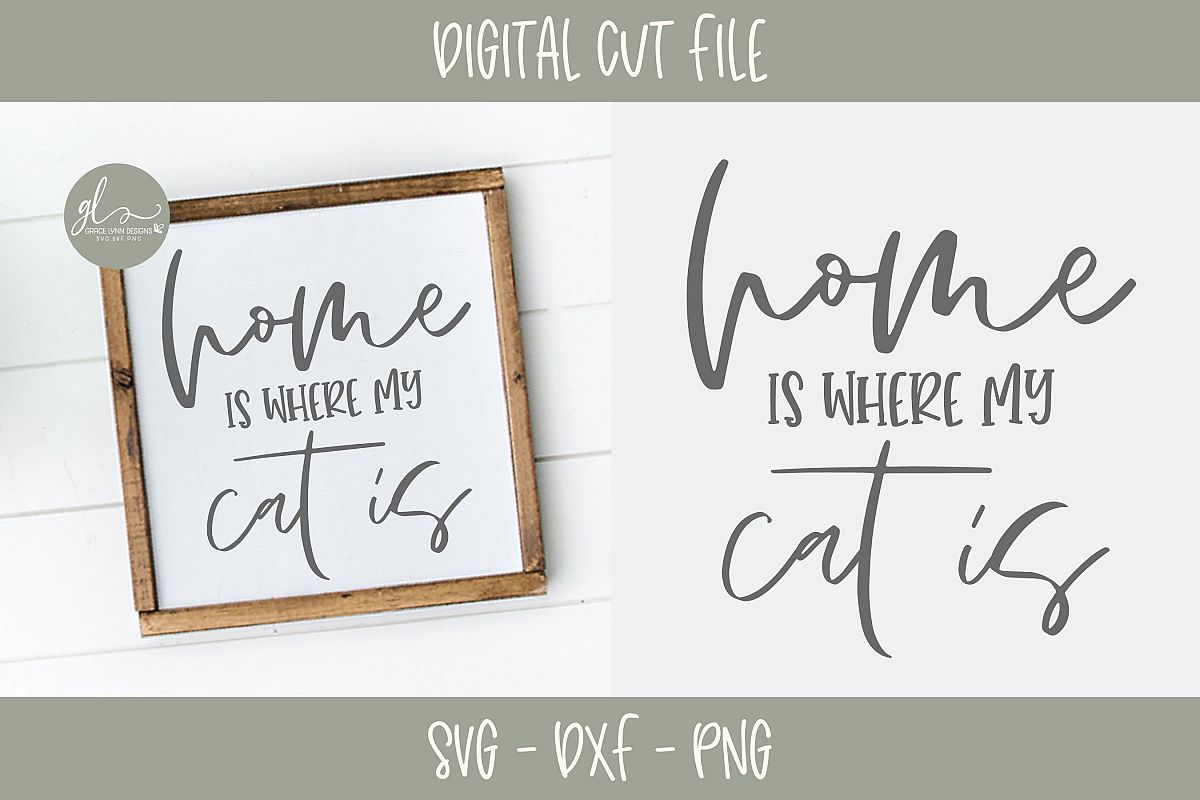 DIGITAL CUT FILE
gl
GRACE LYNN DESIGNS
SVG.DXF.PNG
home
IS WHERE MY
cat is
home
IS WHERE MY
cat is
SVG - DXF - PNG